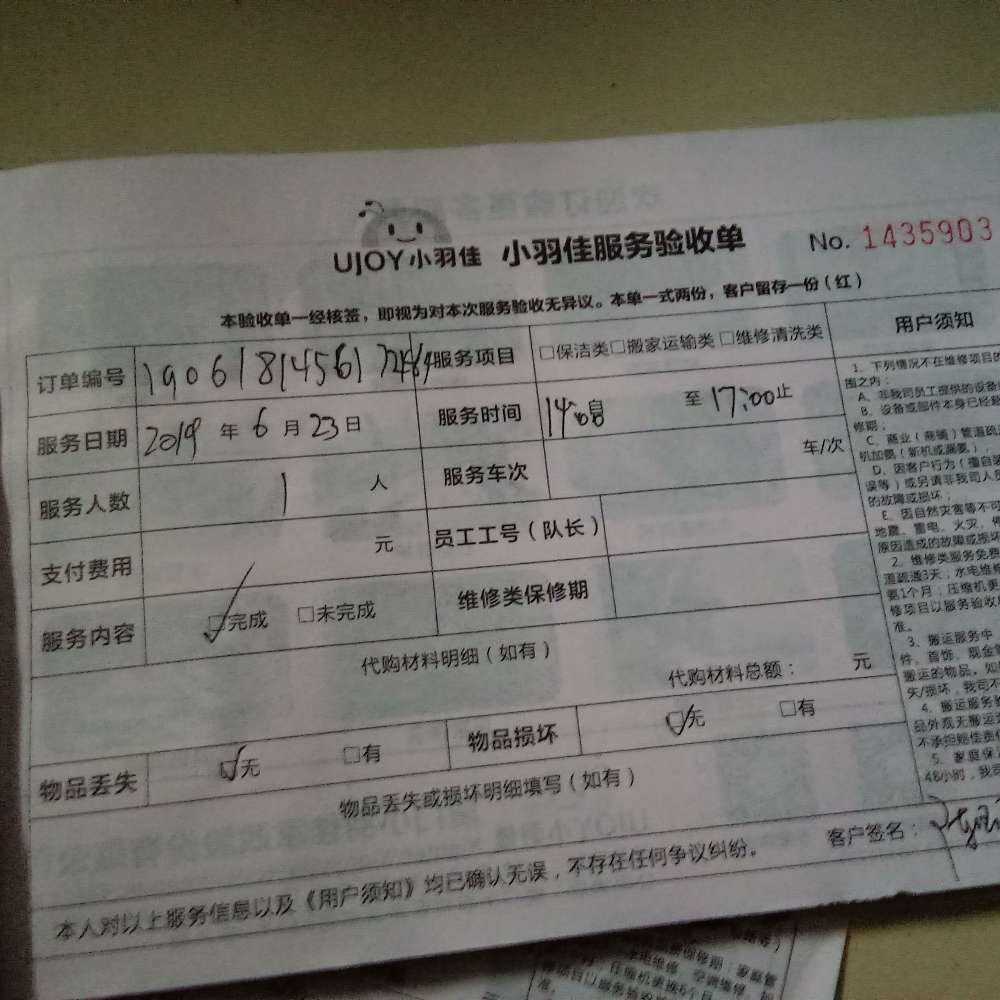 UJOY小羽佳 小羽佳服务验收单 No. 1435903
本验收单一经核签，即视为对本次服务验收无异议。本单一式两份，客户留存一份（红）
订单编号 服务项目 □保洁类□搬家运输类 □维修清洗类
服务日期 2019 年 6 月 23 日 服务时间 至 17:00止
服务人数 1 人 服务车次 车/次
支付费用 元 员工工号（队长）
服务内容 ☑完成 □未完成 维修类保修期
代购材料明细（如有）
代购材料总额： 元
物品丢失 ☑无 □有 物品损坏 ☑无 □有
物品丢失或损坏明细填写（如有）
客户签名：
本人对以上服务信息以及《用户须知》均已确认无误，不存在任何争议纠纷。
用户须知
1、下列情况不在维修项目的
围之内：
A、非我司员工提供的设备
B、设备或部件本身已经
修期；
C、商业（商铺）管道疏
机加氨（新机或漏氨）
D、因客户行为（擅自
误等）或另请非我司人员
的故障或损坏；
E、因自然灾害等不可
地震、雷电、火灾、
原因造成的故障或损坏
2、维修类服务免费
道疏通3天；水电维修
要1个月；压缩机更
修项目以服务验收
准。
3、搬运服务中
件、首饰、现金
搬运的物品。如
失/损坏，我司不
4、搬运服务
品外观无搬运
不承担赔偿责
5、家庭保
48小时，我司